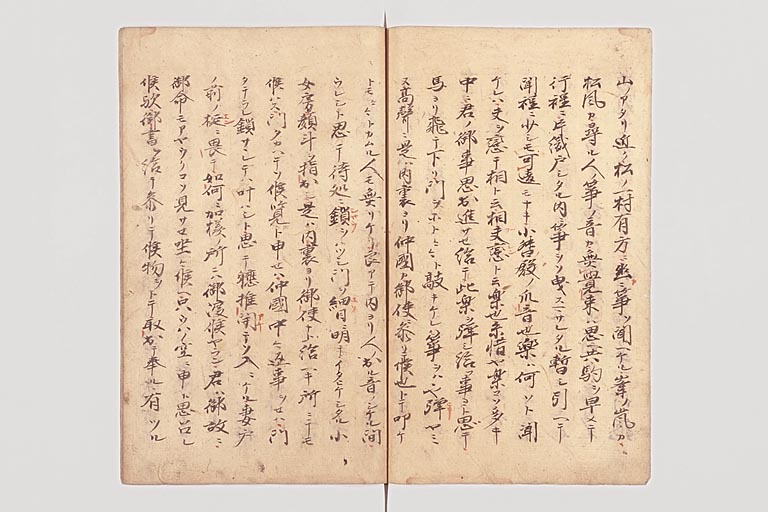 山ノアタリ近ク松ノ一村有方ニ幽ニ箏ソ聞ヘケル峯ノ嵐カ
松風カ尋ル人ノ箏ノ音カ無覚束ハ思共駒ヲ早ヘテ
行程ニ片織戸シタル内ニ箏ヲソ曳スマサレタル暫シ引ヘテ
聞程ニ少シモ可違モナキ小督殿ノ爪音也楽ハ何ソト聞
ケレハ夫ヲ恋テ相ト云相夫恋ト云楽也糸惜ヤ楽コソ多キ
中ニ君ノ御事思出進サセ給テ此楽ヲ弾シ給フ事ヨト思テ
馬ヨリ飛テ下リ門ヲホトヽヽト敲キケレハ箏ヲハ弾ヤミ
又高声ニ是ハ内裏ヨリ仲國ト御使ニ参リ候也トテ叩ケ
トモヽヽトカムル人モ無リケリ良アテ内ヨリ人ノ出ル音ノシケル間
ウレシト思テ待処ニ鎖ヲハツシ門ヲ細目ニ明ケイタヒケシタル小
女房顔斗ヲ指出シ是ハ内裏ヨリ御使ナト給ヘキ所ニテモ
候ハス門タカハヘテソ候覧ト申セハ仲國中々返事セハ門
タテラレ鎖サレテハ叶ハシト思テ軈推開テソ入ニケル妻戸
ノ前ノ板ニ畏テ如何ニ加様ノ所ニハ御渡候ヤラン君ハ御故ニ
御命ニアヤウクコソ見サセ坐候只ハウハノ空ニ申トト思召シ
候歟御書ヲ給リテ参リテ候物ヲトテ取出テ奉ル有ツル